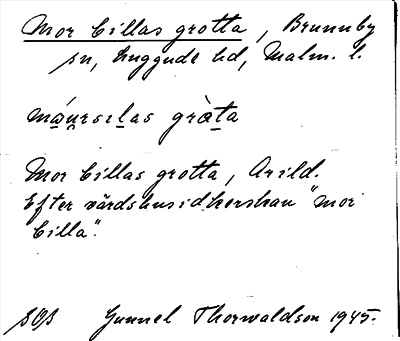 Mor Cillas grotta, Brunnby
sn, Luggude hd, Malm. l.
má̱u̯rsɪḻas grò̱ṯa
Mor Cillas grotta, Arild.
Efter värdshusidkerskan "mor
Cilla".
Gunnel Thorwaldson 1945.